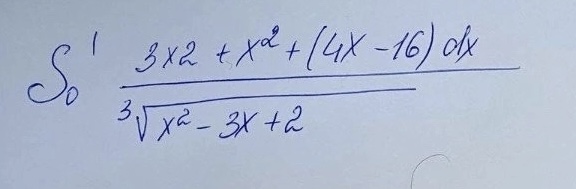 S₀¹ 3x2 + x² + (4x - 16) dx
³√x² - 3x + 2